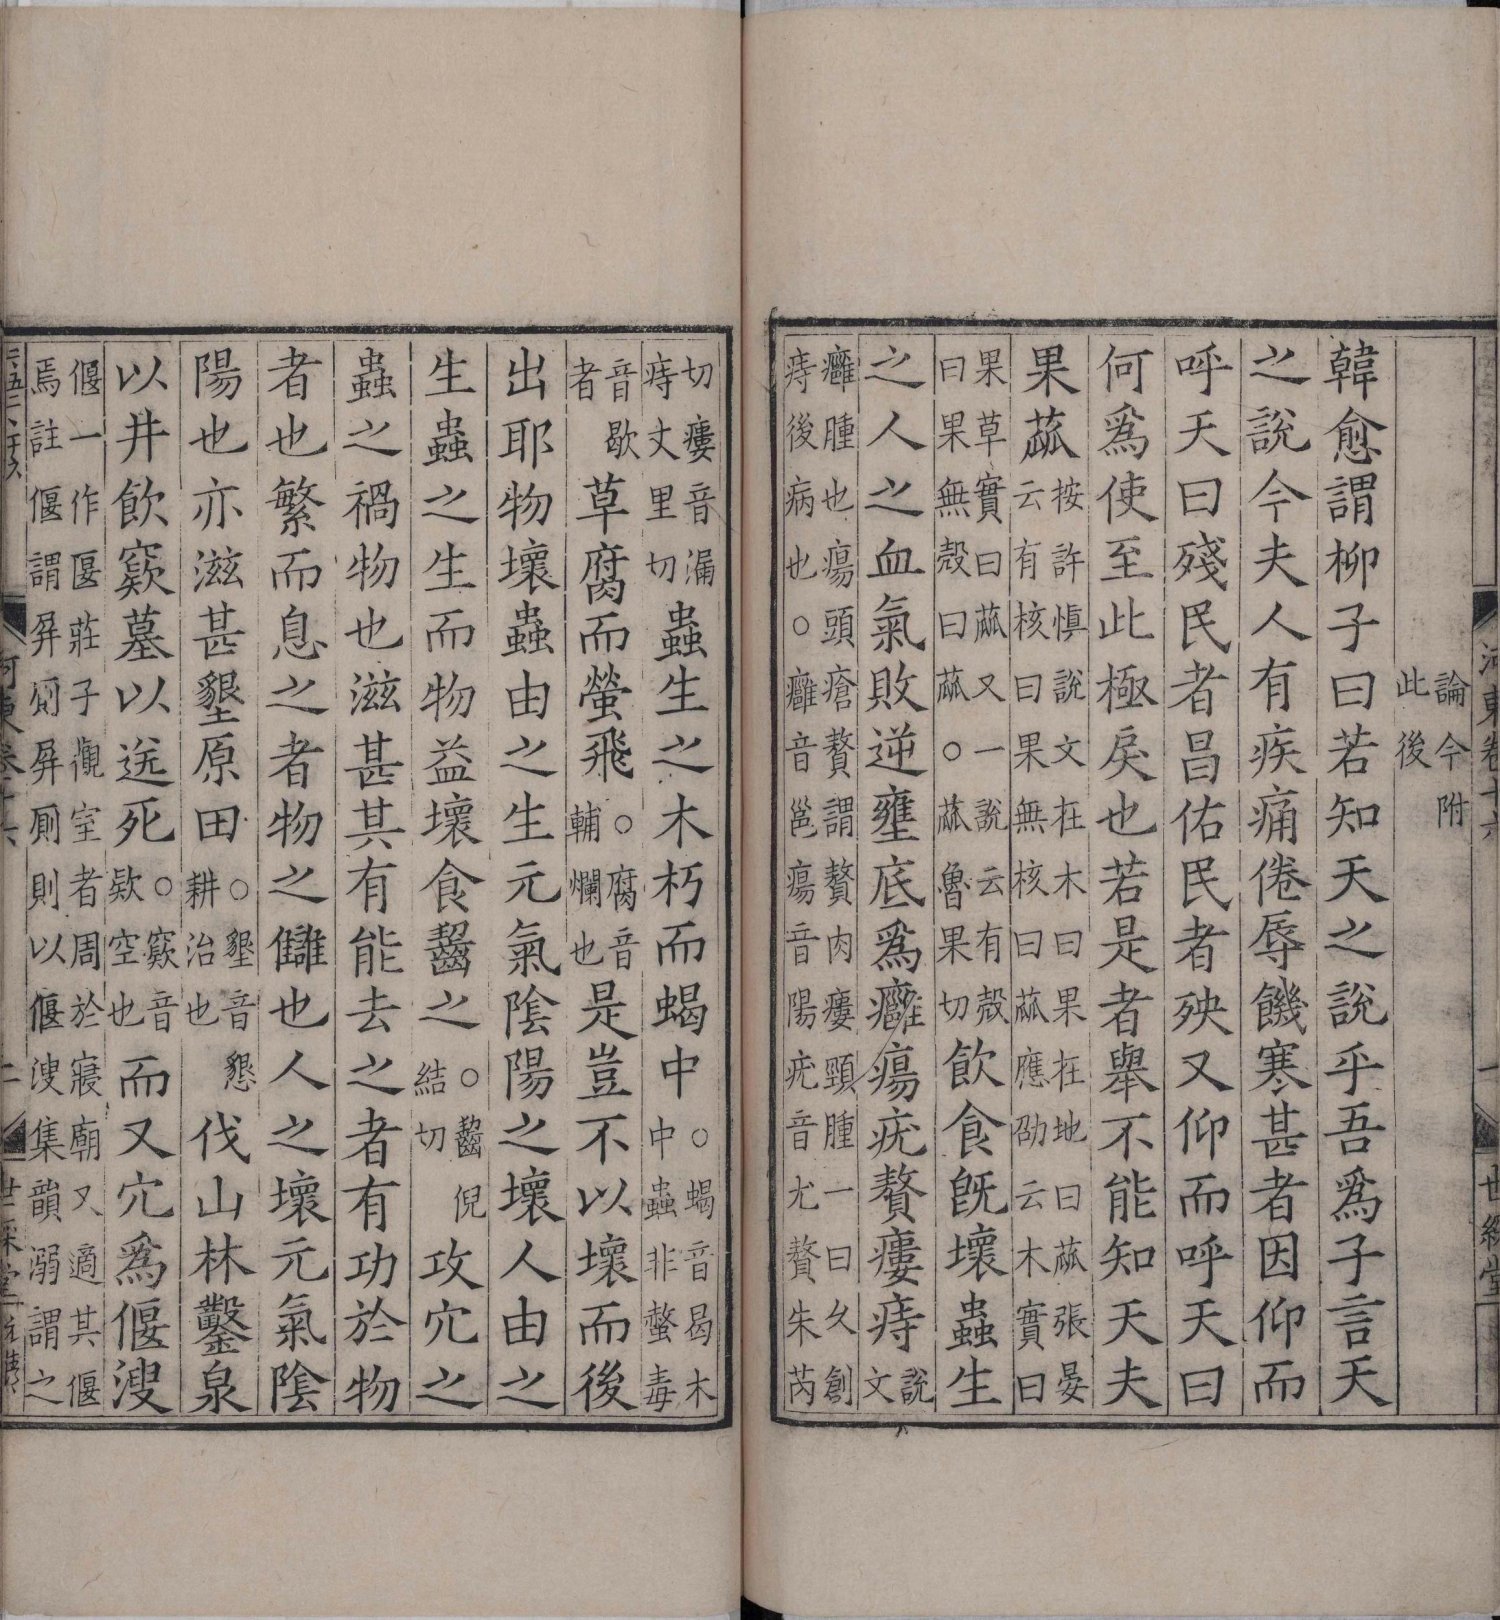 論今附
此後
韓愈謂柳子曰若知天之說乎吾爲子言天
之說今夫人有疾痛倦辱饑寒甚者因仰而
呼天曰殘民者昌佑民者殃又仰而呼天曰
何爲使至此極戾也若是者舉不能知天夫
果蓏按許愼說文在木曰果在地曰蓏張晏云有核曰果無核曰蓏應劭云木實曰
果草實曰蓏又一說云有殼曰果無殼曰蓏○蓏魯果切飲食旣壞蟲生
之人之血氣敗逆壅底爲癰瘍疣贅瘻痔說文
癰腫也瘍頭瘡贅謂贅肉瘻頸腫一曰久創痔後病也○癰音邕瘍音陽疣音尤贅朱芮
切瘻音漏痔丈里切蟲生之木朽而蝎中○蝎音曷木中蟲非螫毒
者音歇草腐而螢飛○腐音輔爛也是豈不以壞而後
出耶物壞蟲由之生元氣陰陽之壞人由之
生蟲之生而物益壞食齧之○齧倪結切攻穴之
蟲之禍物也滋甚其有能去之者有功於物
者也繁而息之者物之讎也人之壞元氣陰
陽也亦滋甚墾原田○墾音懇耕治也伐山林鑿泉
以井飲窾墓以送死○窾音款空也而又穴爲偃溲
偃一作匽莊子觀室者周於寢廟又適其偃焉註偃謂屛廁屛厠則以偃溲集韻溺謂之
河東卷十六
一
世綵堂
二